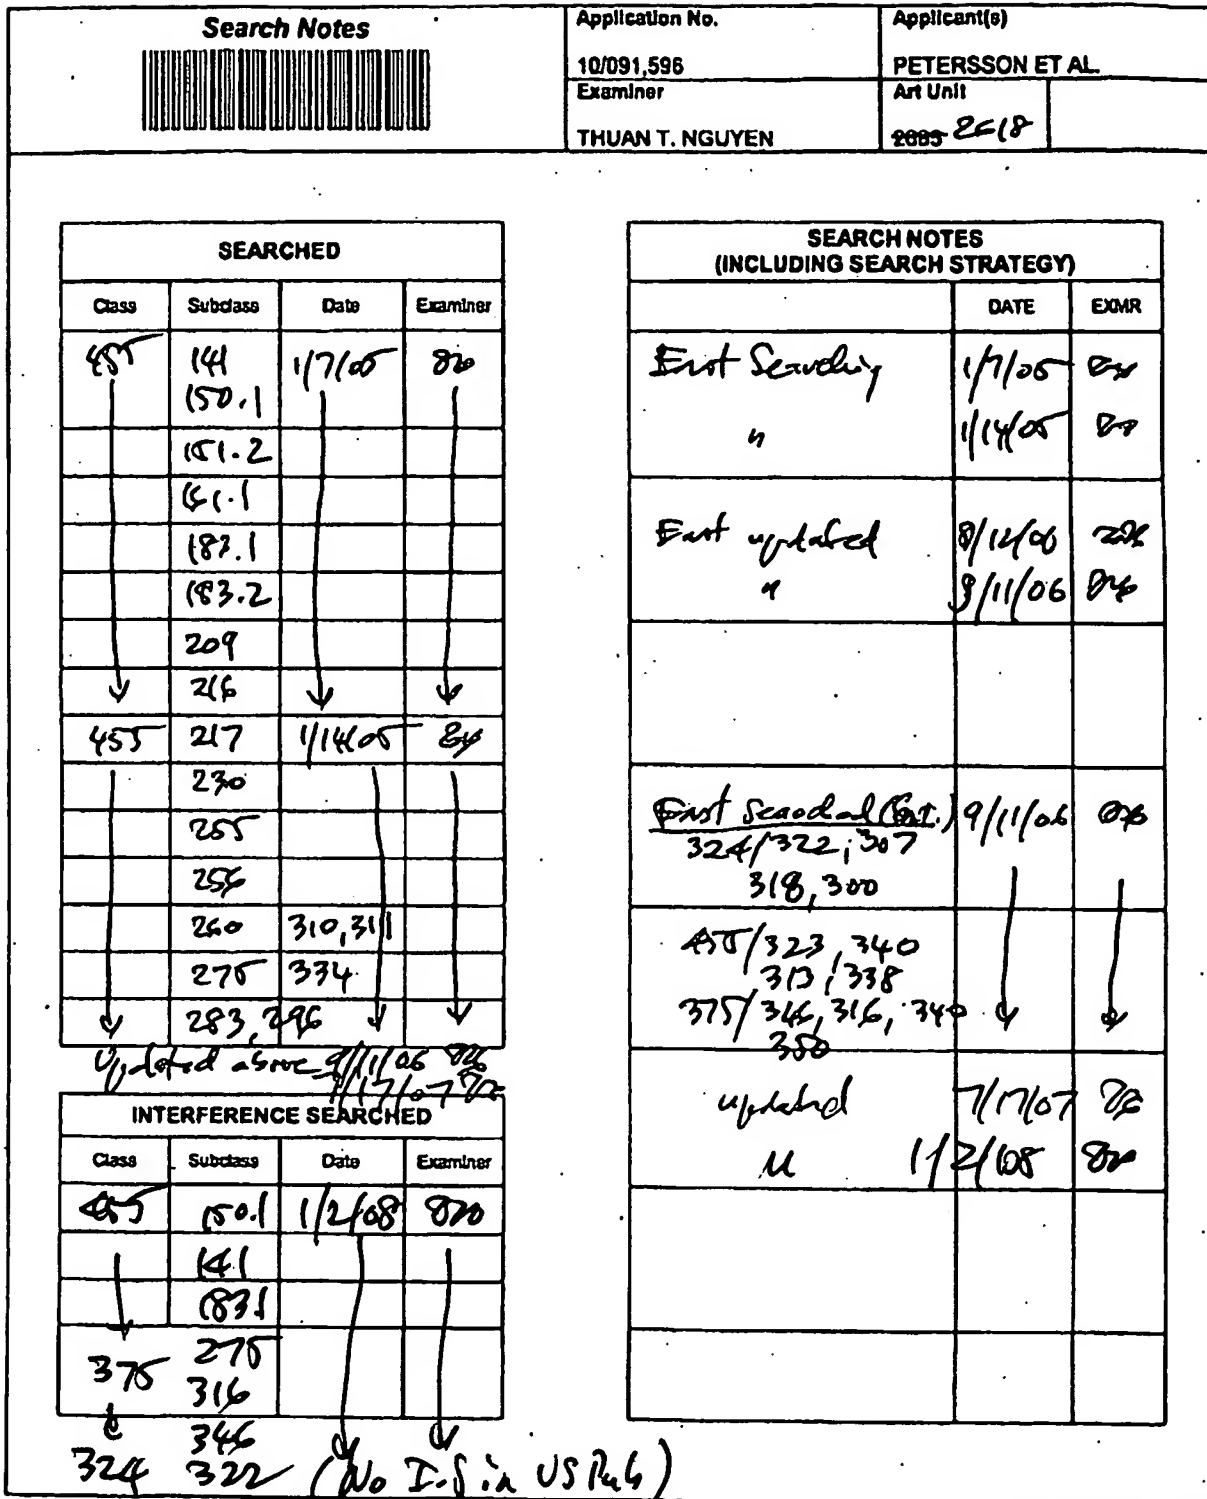 Search Notes
Application No.
Applicant(s)
10/091,596
PETERSSON ET AL.
Examiner
Art Unit
THUAN T. NGUYEN
2685 2618
SEARCHED
Class Subclass Date Examiner
455 141 1/7/05
150.1
151.2
161.1
183.1
183.2
209
216
455 217 1/14/05
230
255
256
260 310,311
275 334
283,296
Updated above 9/11/06
7/17/07
INTERFERENCE SEARCHED
Class Subclass Date Examiner
455 150.1 1/2/08
141
183.1
275
375 316
346
324 322 (No I.S in US Pub)
SEARCH NOTES
(INCLUDING SEARCH STRATEGY)
DATE EXMR
East Searching 1/7/05
" 1/14/05
East updated 8/12/06
" 9/11/06
East Searched (Cont.) 9/11/06
324/322, 307
318, 300
455/323, 340
313, 338
375/346, 316, 340
350
updated 7/17/07
" 1/2/08